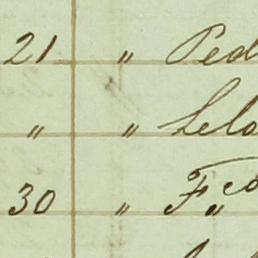 21 " Ped
" " Lelo
30 " F,,co